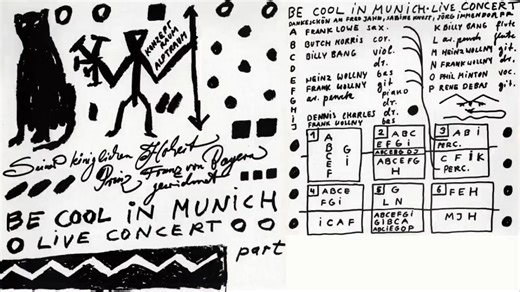 KONZEPT
RAUM
ALPTRAUM
Seiner königlichen Hoheit
Prinz Franz von Bayern
gewidmet
BE COOL iN MUNiCH
LiVE CONCERT
part
BE COOL iN MUNiCH·LiVE CONCERT
DANKESCHÖN AN FRED JAHN, SABINE KNUST, JÖRG IMMENDORFF
A FRANK LOWE sax.
B BUTCH MORRIS cor.
C BiLLY BANG viol.
dr.
E HEiNZ WOLLNY bas
F FRANK WOLLNY git
G av. penck piano
H dr.
i DENNIS CHARLES dr.
J FRANK WOLLNY bas
K BILLY BANG flute
L av. penck
M HEiNZ WOLLNY git.
N FRANK WOLLNY dr.
O PHIL MiNTON voc.
P RENE DEBAS git.
1 A
B
C
E
F
G
i
2 ABC
EFGi
ABCEFG
H
3 ABi
PERC.
CFiK
PERC.
4 ABCE
FGi
iCAF
5 G
LN
ABCEFGi
GiBCA
ABCiEGOP
6 FEH
MJH